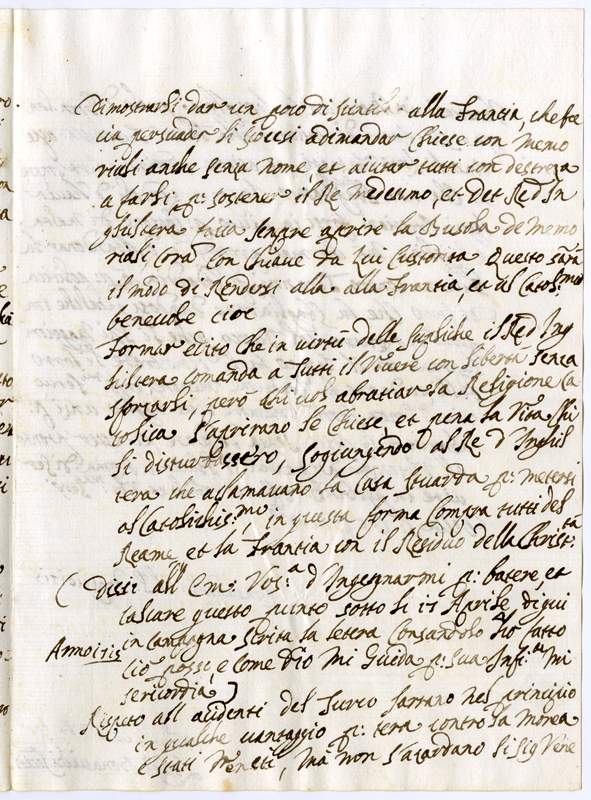 Dimostrarsi dar un poco di scintila alla Francia, che fe
cia persuader li Scocesi adimandar Chiese con memo
riali anche senza nome, et aiutar tutti con destreza
a farsi p: sostener il Re medesimo, et Del Re d In
ghiltera facia sempre aprire la Busola de memo
riali con Chiave da lui Custodita Questo sarà
il modo di Rendersi alla alla Francia, et al Catol:mo
benevole cioè
Formar edito che in virtù delle supliche il Re d Ing
hiltera comanda a Tutti il Vivere con libertà senza
sforzarsi, però chi vol abratiar la Religione Ca
tolica s'aprirano le Chiese, et pena la Vita chi
li disturbassero, sogiungendo al Re d'Inghil
tera che aclamavano la Casa Stuarda p: metersi
al Catolichis:mo, in questa forma Compra tutti del
Reame, et la Francia con il Residuo della Christ:tà
( Dissi all Em: Vos:a d'Ingegnarmi p: batere, et
calcare questo punto sotto li 17 Aprile, di qui
in Campagna scrita la letera Consandolo d'io fatto
Armoirsis
ciò posse, e come Dio mi Guida p: sua Infi:ta mi
sericordia )
Rispeto all acidenti del Turco sarano nel principio
in qualche vantaggio p: tera contro la Morea
e stati Veneti, Ma non s'acordano li Sig Vene